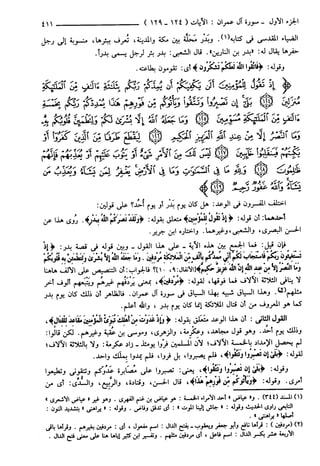 الجزء الأول - سورة آل عمران : الآيات (١٢٤ - ١٢٩)
٤١١
الضياء المقدسي في كتابه(١). وبَدْر مَحَلَّة بين مكة والمدينة، تُعرف ببئرها، منسوبة إلى رجل
حفرها يقال له : «بدر بن النارين». قال الشعبي: بدر بئر لرجل يسمى بدراً.
وقوله: ﴿فَاتَّقُوا اللَّهَ لَعَلَّكُمْ تَشْكُرُونَ﴾ أي: تقومون بطاعته.
﴿إِذْ تَقُولُ لِلْمُؤْمِنِينَ أَلَن يَكْفِيَكُمْ أَن يُمِدَّكُمْ رَبُّكُم بِثَلَاثَةِ ءَالَافٍ مِّنَ الْمَلَائِكَةِ
مُنزَلِينَ بَلَىٰ إِن تَصْبِرُوا وَتَتَّقُوا وَيَأْتُوكُم مِّن فَوْرِهِمْ هَٰذَا يُمْدِدْكُمْ رَبُّكُم بِخَمْسَةِ
ءَالَافٍ مِّنَ الْمَلَائِكَةِ مُسَوِّمِينَ وَمَا جَعَلَهُ اللَّهُ إِلَّا بُشْرَىٰ لَكُمْ وَلِتَطْمَئِنَّ قُلُوبُكُم بِهِ
وَمَا النَّصْرُ إِلَّا مِنْ عِندِ اللَّهِ الْعَزِيزِ الْحَكِيمِ لِيَقْطَعَ طَرَفًا مِّنَ الَّذِينَ كَفَرُوا أَوْ
يَكْبِتَهُمْ فَيَنقَلِبُوا خَائِبِينَ لَيْسَ لَكَ مِنَ الْأَمْرِ شَيْءٌ أَوْ يَتُوبَ عَلَيْهِمْ أَوْ يُعَذِّبَهُمْ فَإِنَّهُمْ
ظَالِمُونَ وَلِلَّهِ مَا فِي السَّمَاوَاتِ وَمَا فِي الْأَرْضِ يَغْفِرُ لِمَن يَشَاءُ وَيُعَذِّبُ مَن
يَشَاءُ وَاللَّهُ غَفُورٌ رَّحِيمٌ﴾
اختلف المفسرون في الوعد: هل كان يوم بَدْر أو يوم أُحُد؟ على قولين:
أحدهما: أن قوله: ﴿إِذْ تَقُولُ لِلْمُؤْمِنِينَ﴾ متعلق بقوله: ﴿وَلَقَدْ نَصَرَكُمُ اللَّهُ بِبَدْرٍ﴾. روي هذا عن
الحسن البصري، والشعبي، وغيرهما. واختاره ابن جرير.
فإن قيل: فما الجمع بين هذه الآية - على هذا القول - وبين قوله في قصة بدر: ﴿إِذْ
تَسْتَغِيثُونَ رَبَّكُمْ فَاسْتَجَابَ لَكُمْ أَنِّي مُمِدُّكُم بِأَلْفٍ مِّنَ الْمَلَائِكَةِ مُرْدِفِينَ. وَمَا جَعَلَهُ اللَّهُ إِلَّا بُشْرَىٰ وَلِتَطْمَئِنَّ بِهِ قُلُوبُكُمْ
وَمَا النَّصْرُ إِلَّا مِنْ عِندِ اللَّهِ إِنَّ اللَّهَ عَزِيزٌ حَكِيمٌ﴾ [الأنفال: ٩، ١٠]؟ فالجواب: أن التنصيص على الألف هاهنا
لا ينافي الثلاثة الآلاف فما فوقها، لقوله: ﴿مُرْدِفِينَ﴾، بمعنى يَرْدَفُهم غيرهم ويَتْبَعهم ألوف أخر
مثلهم(٢). وهذا السياق شبيه بهذا السياق في سورة آل عمران. فالظاهر أن ذلك كان يوم بدر
كما هو المعروف من أن قتال الملائكة إنما كان يوم بدر ، والله أعلم.
القول الثاني : أن هذا الوعد متعلق بقوله: ﴿وَإِذْ غَدَوْتَ مِنْ أَهْلِكَ تُبَوِّئُ الْمُؤْمِنِينَ مَقَاعِدَ لِلْقِتَالِ﴾.
وذلك يوم أُحُد. وهو قول مجاهد، وعكرمة، والزهري، وموسى بن عقبة وغيرهم. لكن قالوا:
لم يحصل الإمداد بالخمسة الآلاف، لأن المسلمين فرّوا يومئذ. زاد عكرمة: ولا بالثلاثة الآلاف؛
لقوله: ﴿بَلَىٰ إِن تَصْبِرُوا وَتَتَّقُوا﴾، فلم يصبروا، بل فروا، فلم يُمدوا بملك واحد.
وقوله: ﴿بَلَىٰ إِن تَصْبِرُوا وَتَتَّقُوا﴾، يعني: تصبروا على مصابرة عَدُوّكم وتتقوني وتطيعوا
أمري. وقوله: ﴿وَيَأْتُوكُم مِّن فَوْرِهِمْ هَٰذَا﴾، قال الحسن، وقتادة، والربيع، والسدي: أي من
(١) المسند (٣٤٤). و
(٢) (مردفين) : قرأها نافع وأبو جعفر ويعقوب - بفتح الدال : اسم مفعول ، أي : مردفين بغيرهم. وقرأها باقي
الأربعة عشر بكسر الدال : اسم فاعل ، أي مردفين مثلهم. وتفسير ابن كثير إياها هنا على معنى